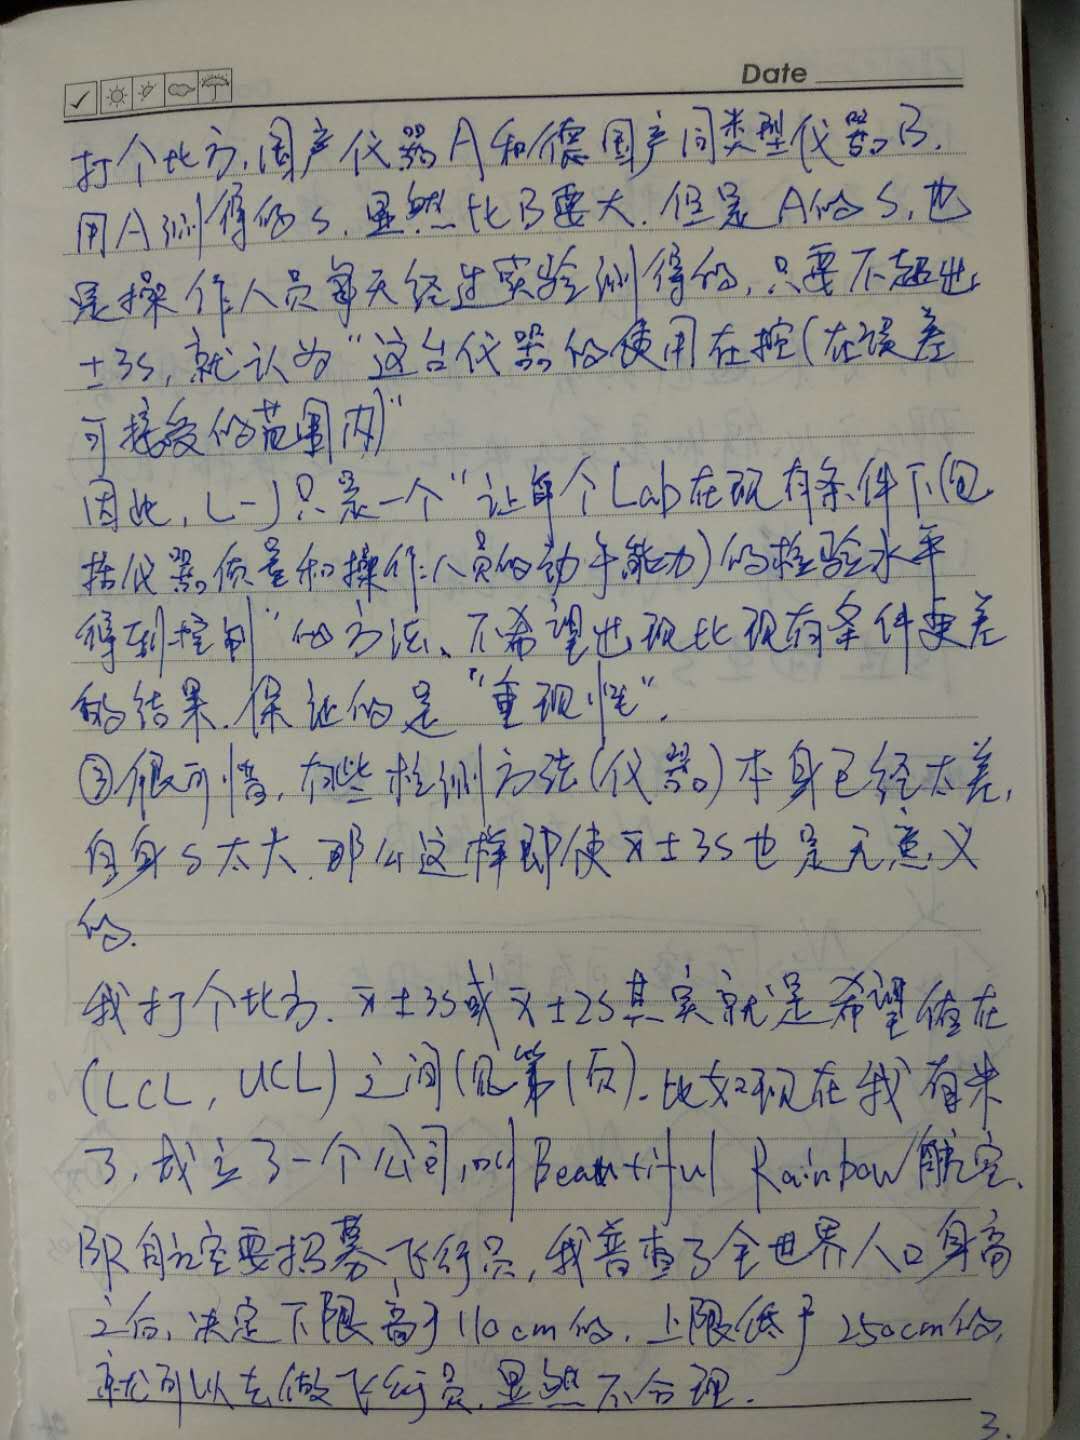 Date
打个比方,国产仪器A和德国产同类型仪器B.
用A测得的S,显然比B要大.但是A的S,也
是操作人员每天经过实验测得的,只要不超出
±3S,就认为"这台仪器的使用在控(在误差
可接受的范围内)"
因此,L-J只是一个"让每个Lab在现有条件下(包
括仪器质量和操作人员的动手能力)的检验水平
得到控制"的方法、不希望出现比现有条件更差
的结果.保证的是"重现性".
③很可惜,有些检测方法(仪器)本身已经太差,
自身S太大.那么这样即使x̄±3S也是无意义
的.
我打个比方.x̄±3S或x̄±2S其实就是希望值在
(LCL,UCL)之间(见第1页).比如现在我有米
了,成立了一个公司,叫Beautiful Rainbow航空.
BR航空要招募飞行员,我普查了全世界人口身高
之后,决定下限高于110cm的,上限低于250cm的,
就可以去做飞行员.显然不合理.
3.